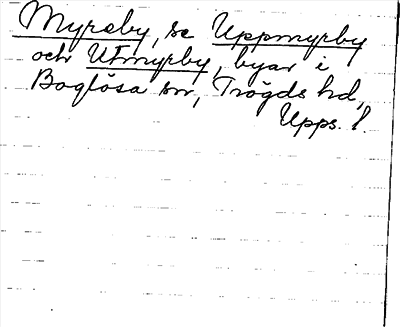 Myreby, se Uppmyrby
och Utmyrby, byar i
Boglösa sn, Trögds hd,
Upps. l.